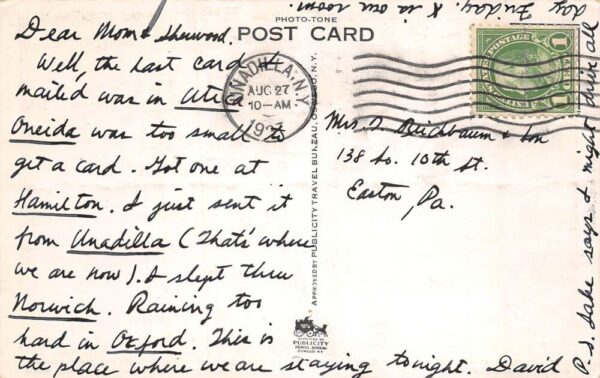 PHOTO-TONE
POST CARD
Dear Mom & Sherwood.
Well, the last card I
mailed was in Utica
Oneida was too small to
get a card. Got one at
Hamilton. I just sent it
from Unadilla (That's where
we are now). I slept thru
Norwich. Raining too
hard in Oxford. This is
the place where we are staying tonight. David
UNADILLA, N.Y.
AUG 27
10-AM
Mrs. D. Reichbaum & Son
138 So. 10th St.
Easton, Pa.
APPROVED BY PUBLICITY TRAVEL BUREAU, OSWEGO, N.Y.
PUBLICITY
TRAVEL BUREAU
OSWEGO NY
1 1
P.S. says I might drive all
day Friday. X is our room.